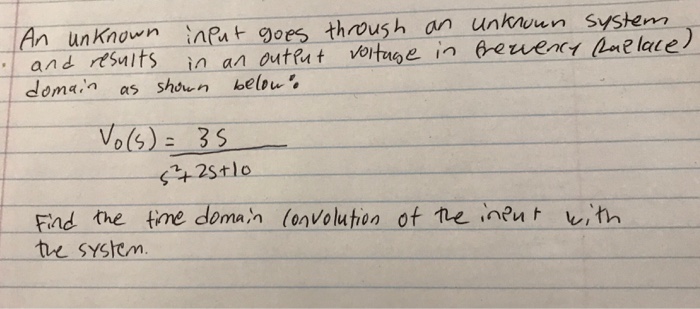 An unknown input goes through an unknown system
and results in an output voltage in frequency (Laplace)
domain as shown below:
Vo(s) = 3s
s²+2s+10
Find the time domain convolution of the input with
the system.